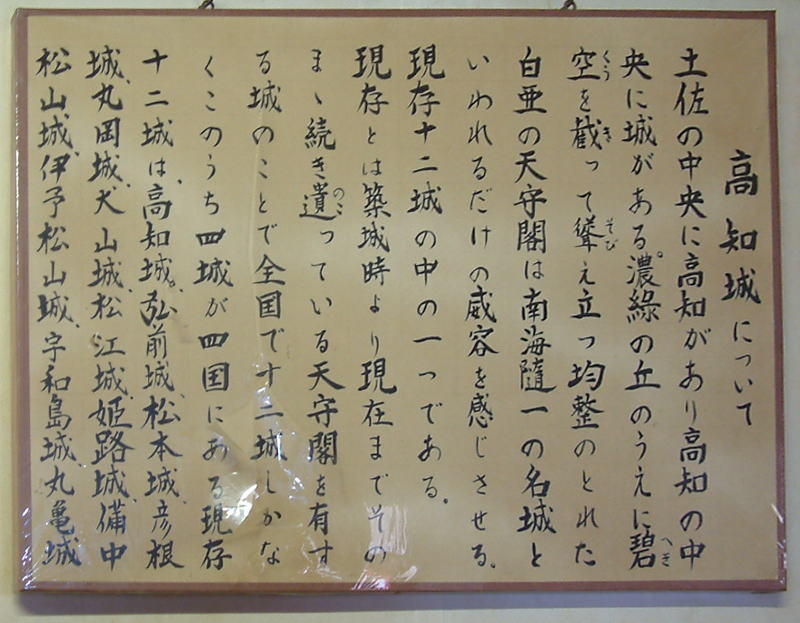 高知城について
土佐の中央に高知があり高知の中
央に城がある。濃緑の丘のうえに碧
空を截って聳え立つ均整のとれた
白亜の天守閣は南海随一の名城と
いわれるだけの威容を感じさせる。
現存十二城の中の一つである。
現存とは築城時より現在までその
まゝ続き遺っている天守閣を有す
る城のことで全国で十二城しかな
くこのうち四城が四国にある現存
十二城は、高知城。弘前城、松本城、彦根
城、丸岡城、犬山城、松江城、姫路城、備中
松山城、伊予松山城、宇和島城、丸亀城